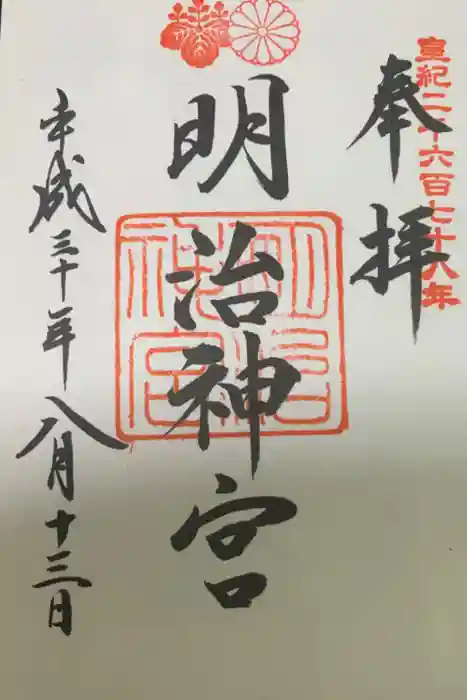 皇紀二千六百七十八年
奉拝
明治神宮
平成三十年八月十三日
明治神宮